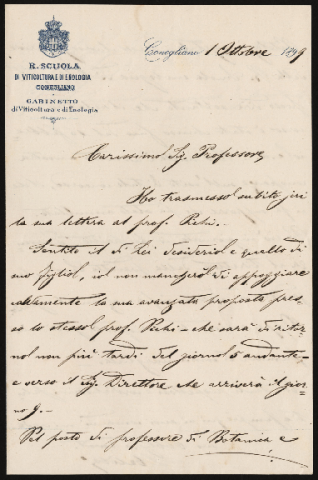 R. SCUOLA
DI VITICOLTURA E DI ENOLOGIA
CONEGLIANO
GABINETTO
di Viticoltura e di Enologia
Conegliano 1 Ottobre 1899
Carissimo Sig. Professore,
Ho trasmesso subito, jeri
la sua lettera al prof.
Sentito il di Lei desiderio e quello di
suo figlio, io non mancherò di appoggiare
caldamente la sua avanzata proposta pres=
so lo stesso prof. che sarà di ritor
no non più tardi del giorno 5 andante
e verso il Sig. Direttore che arriverà il gior=
no 9.
Pel posto di professore di Botanica e